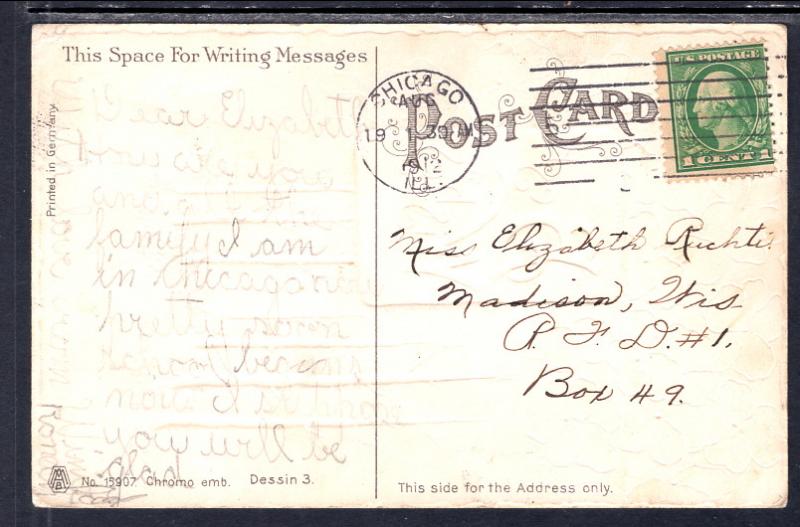 This Space For Writing Messages
Dear Elizabeth
How are you
and all the
family I am
in Chicago now
pretty soon
school begins
now I suppose
you will be
glad
Printed in Germany.
No. 15907 Chromo emb. Dessin 3.
CHICAGO
AUG
19 1 30 AM
1912
ILL.
POST CARD
U.S. POSTAGE
1 CENT 1
Miss Elizabeth Richti
Madison, Wis
R. F. D. #1.
Box 49.
This side for the Address only.